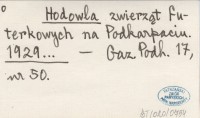 Hodowla zwierząt fu-
terkowych na Podkarpaciu.
1929... — Gaz. Podh. 17,
nr 50.